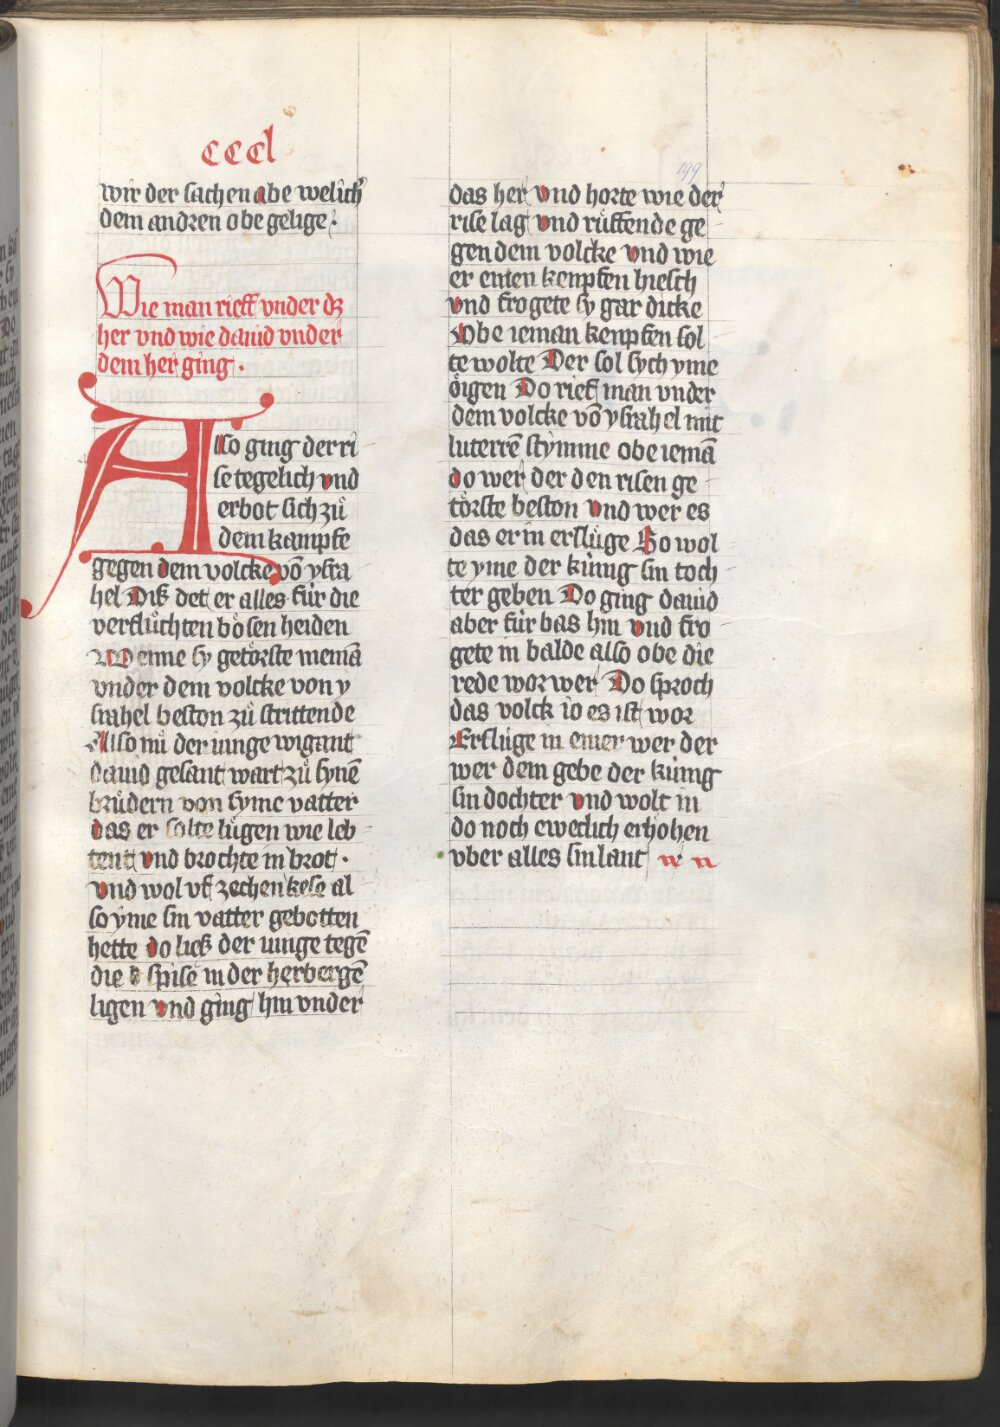 cccl
199
wir der sachen abe welich͛
dem andren obe gelige·
Wie man rieff vnder dz
her vnd wie dauid vnder
dem her ging·
Also ging der ri
se tegelich vnd
erbot sich zů
dem kampfe
gegen dem volcke võ ysra
hel Diß det er alles für die
verflůchten bösen heiden
Wenne sy getörste niemã
vnder dem volcke von y
srahel beston zů strittende
Also nů der iunge wigant
dauid gesant wart zů synẽ
brůdern von syme vatter
das er solte lůgen wie leb
tent vnd brochte in brot·
vnd wol vf zechen kese al
so yme sin vatter gebotten
hette do ließ der iunge tegẽ
die spise in der herbergẽ
ligen vnd ging hin vnder
das her vnd horte wie der
rise lag vnd růffende ge
gen dem volcke vnd wie
er einen kenpfen hiesch
vnd frogete sy gar dicke
Obe ieman kenpfen sol
te wolte Der sol sych yme
öigen Do rieff man vnder
dem volcke võ ysrahel mit
luterrẽ stymme obe iemã
do wer der den risen ge
törste beston vnd wer es
das er in erslüge So wol
te yme der künig sin toch
ter geben Do ging dauid
aber für bas hin vnd fro
gete in balde also obe die
rede wor wer Do sproch
das volck io es ist wor
Erslüge in einer wer der
wer dem gebe der künig
sin dochter vnd wolt in
do noch eweclich erhohen
vber alles sin lant